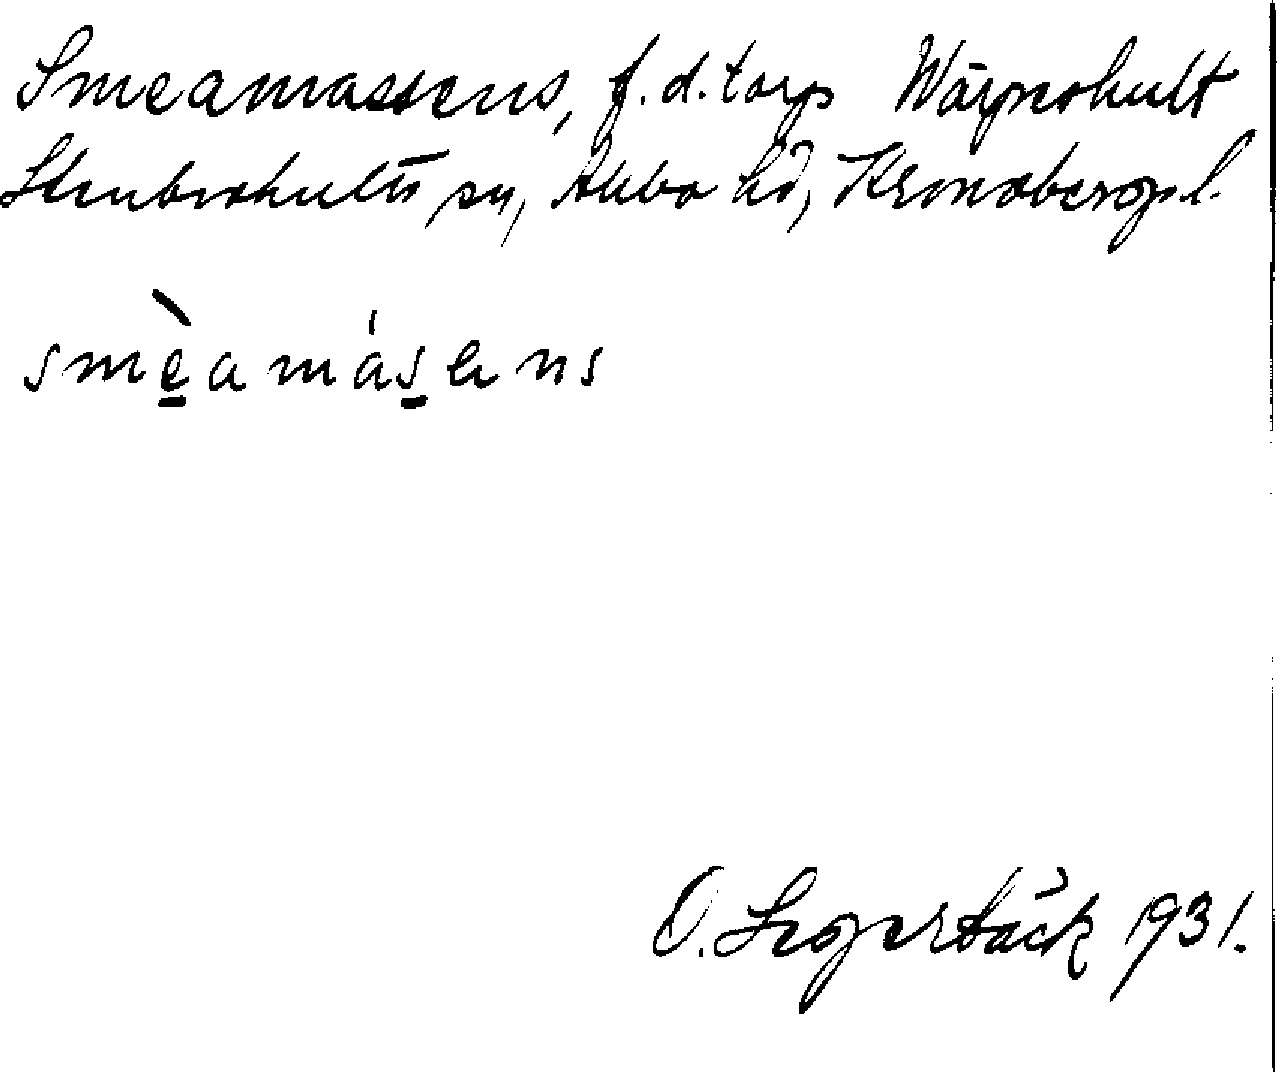 Smeamassens, f.d. torp Wärnshult
Stenbrohults sn, Allbo hd, Kronobergs l.
smèamásens
O. Segerbäck 1931.